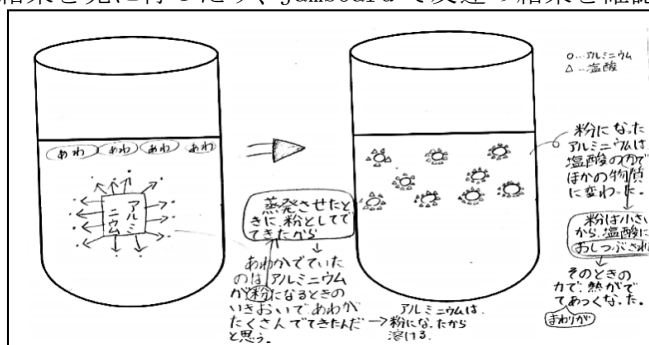 結果を見に行ったり、jamboardで友達の結果を確認
○…アルミニウム
△…塩酸
あわ あわ あわ あわ
アルミ
ニウム
蒸発させたと
きに、粉としてで
てきたから
あわがでていた
のはアルミニウム
が粉になるときの
いきおいで、あわが
たくさんでてきたんだ
と思う。
アルミニウムは、
粉になったから
溶ける。
粉になった
アルミニウムは、
塩酸の力で
ほかの物質
に変わった。
粉は小さい
から、塩酸に
おしつぶされ
そのときの
力で、熱がで
てあつくなった。
まわりが